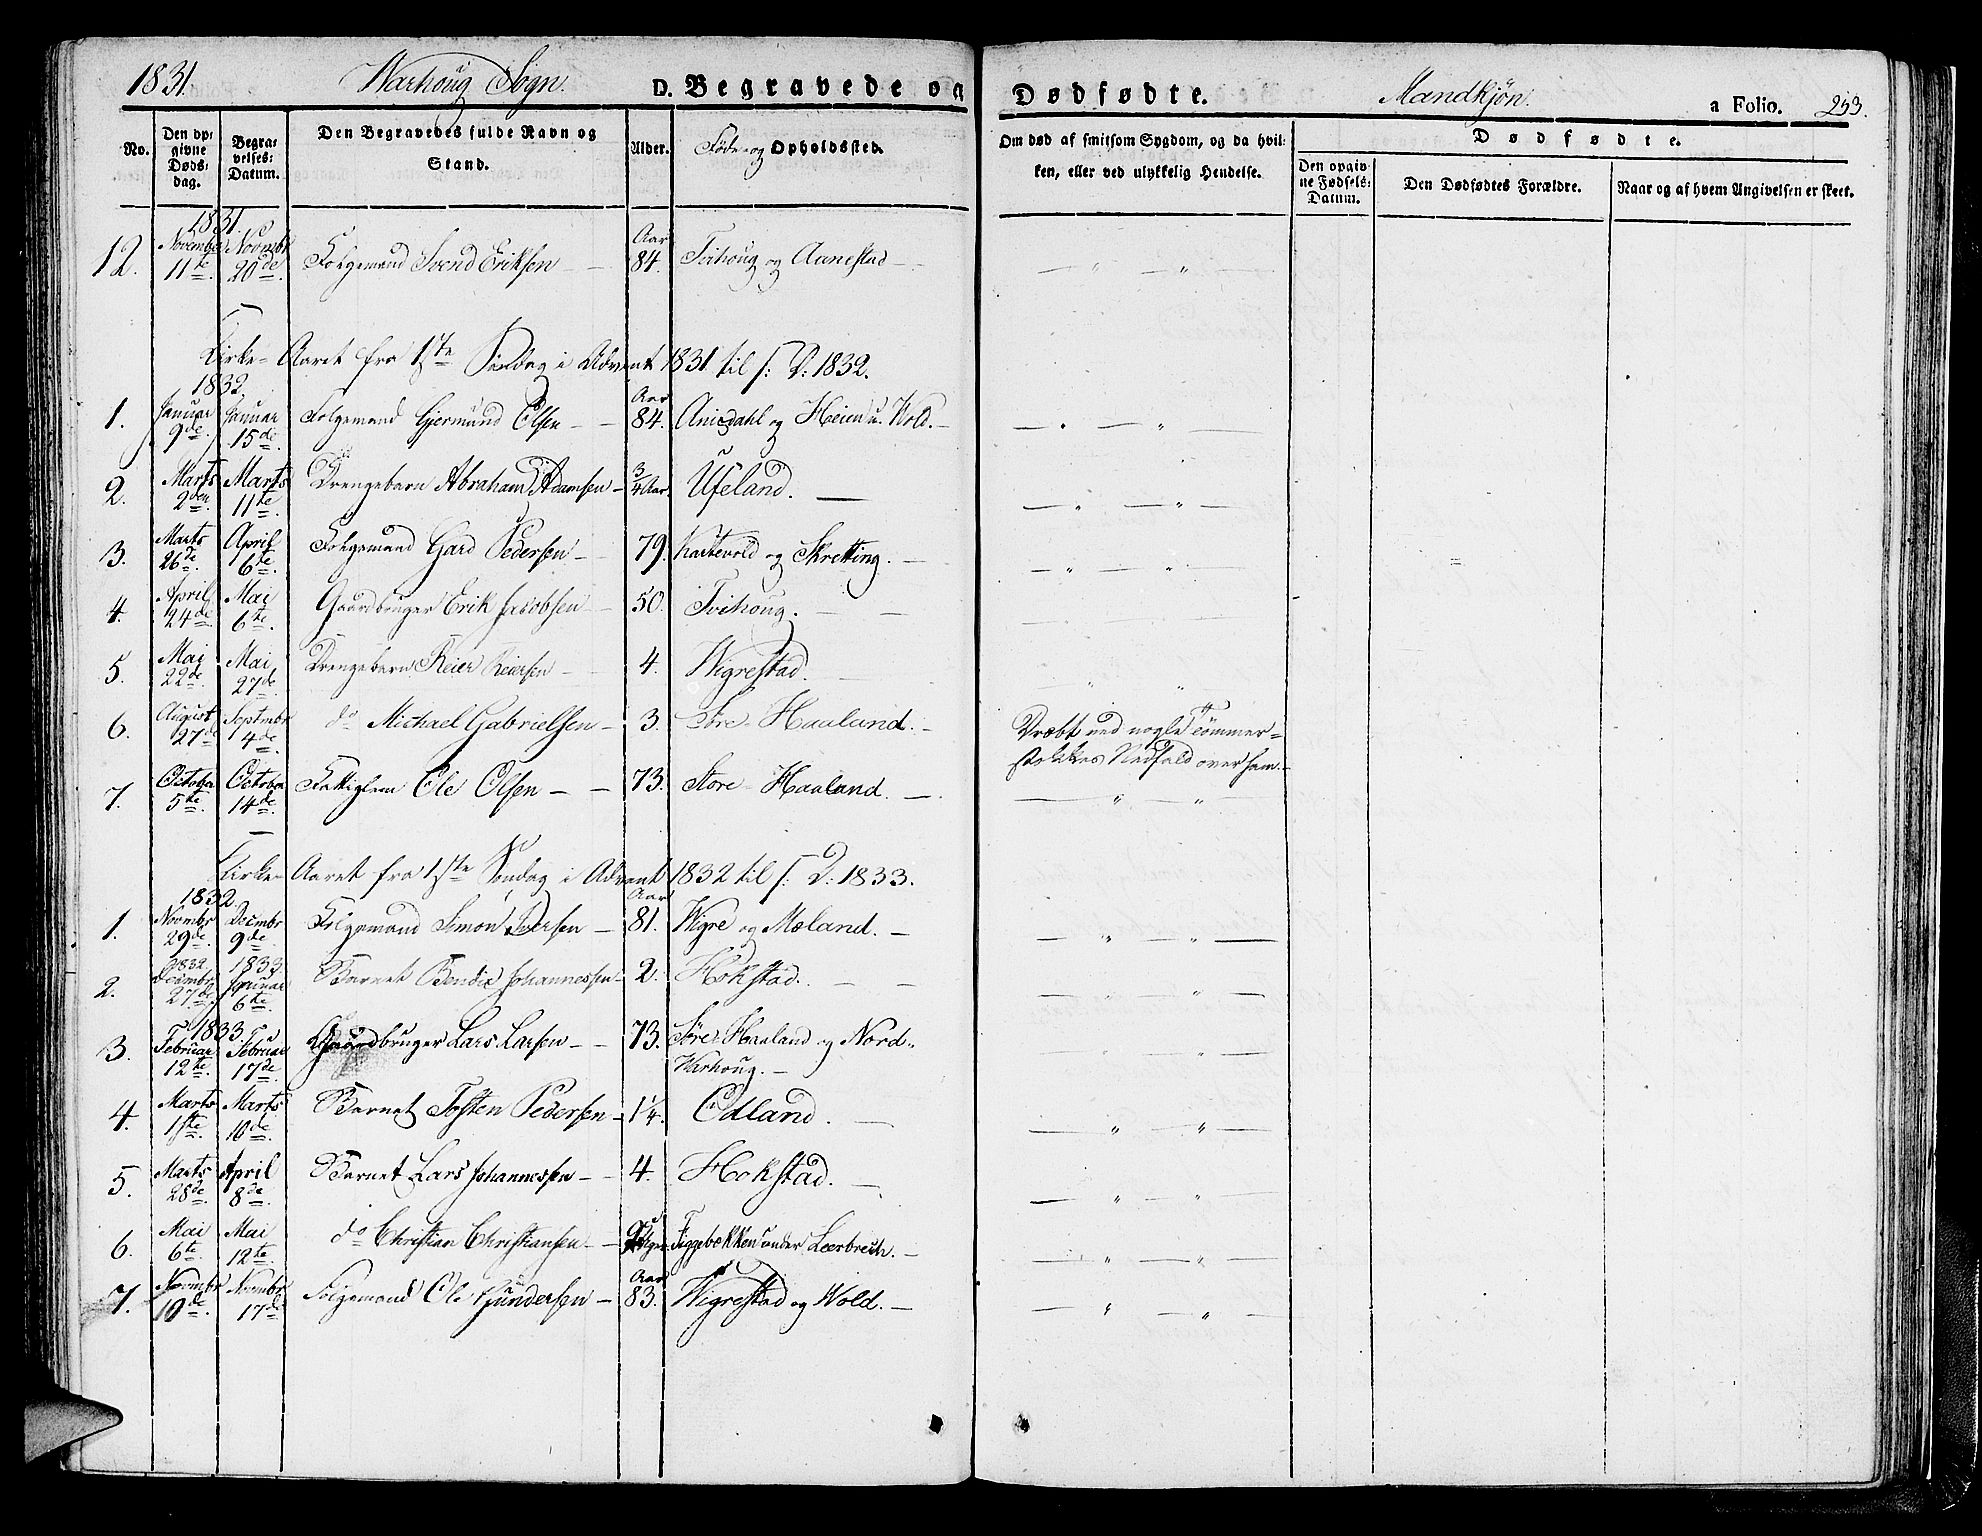 1831. Warhoug Sogn. D. Begravede og Dødfødte. Mandkjøn. a Folio. 253.
No. Den opgivne Dødsdag. Begravelses-Datum. Den Begravedes fulde Navn og Stand. Alder. Føde- og Opholdssted. Om død af smitsom Sygdom, og da hvilken, eller ved ulykkelig Hendelse. Dødfødte. Den opgivne Fødsels-Datum. Den Dødfødtes Forældre. Naar og af hvem Angivelsen er skeet.
1831.
12. November 11te Novmbr 20de Folgemand Svend Eriksen — Aar 84. Tvihoug og Aanestad — " — "
Kirke-Aaret fra 1ste Søndag i Advent 1831 til s: D: 1832.
1832
1. Januar 9de Januar 15de. Folgemand Gjermund Olsen — Aar 84. Anisdahl og Heien u. Wold. — " — "
2. Marts 2den Marts 11te Drengebarn Abraham Adamsen — 3/4 Aar. Ueland. — " — "
3. Marts 26de April 6te Folgemand Gard Pedersen — 79. Kartevold og Skretting. — " — "
4. April 24de Mai 6te Gaardbruger Erik Jacobsen — 50. Tvihoug. —
5. Mai 22de Mai 27de Drengebarn Reier Reiersen — 4. Wigrestad. — " — "
6. August 27de Septmbr 4de do Michael Gabrielsen — 3. Søre-Haaland. — Dræbt ved nogle Tømmer-
stokkes Nedfald over ham. —
7. October 5te October 14de Fattiglem Ole Olsen — 73. Store-Haaland. — " — "
Kirke-Aaret fra 1ste Søndag i Advent 1832 til s: D: 1833.
1832.
1. Novmbr 29de Decmbr 9de Folgemand Simon Iversen — Aar 81. Wigre og Mæland. — " — "
2. 1832 Decmbr 27de 1833 Januar 6te Barnet Bendix Johannessen — 2. Hokstad. — " — "
1833.
3. Februar 12te. Februar 17de Gaardbruger Lars Larsen — 73. Søre-Haaland og Nord-
Warhoug. —
4. Marts 1ste. Marts 10de Barnet Tosten Pedersen — 1 1/4. Odland. — " — "
5. Marts 28de April 8de Barnet Lars Johannessen — 4. Hokstad. — " — "
6. Mai 6te Mai 12te do Christian Christiansen — Figgebekken under Leerbrech. — " — "
7. Novmbr 10de Novmbr 17de Folgemand Ole Gundersen — Aar 83. Wigrestad og Wold. — " — "